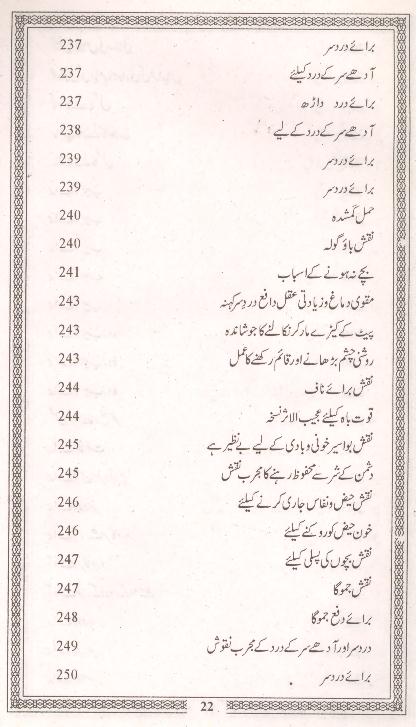 برائے دردسر 237
آدھے سر کے درد کیلئے 237
برائے درد داڑھ 237
آدھے سر کے درد کے لیے 238
برائے دردسر 239
برائے دردسر 239
حمل گمشدہ 240
نقش باؤ گولہ 240
بچے نہ ہونے کے اسباب 241
مقوی دماغ وزیادتی عقل دافع دردسر کہنہ 243
پیٹ کے کیڑے مار کر نکالنے کا جوشاندہ 243
روشنی چشم بڑھانے اور قائم رکھنے کا عمل 243
نقش برائے ناف 244
قوت باہ کیلئے عجیب الاثر نسخہ 244
نقش بواسیر خونی وبادی کے لیے بے نظیر ہے 245
دشمن کے شر سے محفوظ رہنے کا مجرب نقش 245
نقش حیض ونفاس جاری کرنے کیلئے 246
خون حیض کو روکنے کیلئے 246
نقش بچوں کی پسلی کیلئے 247
نقش جموگا 247
برائے دفع جموگا 248
دردسر اور آدھے سر کے درد کے مجرب نقوش 249
برائے دردسر 250
22